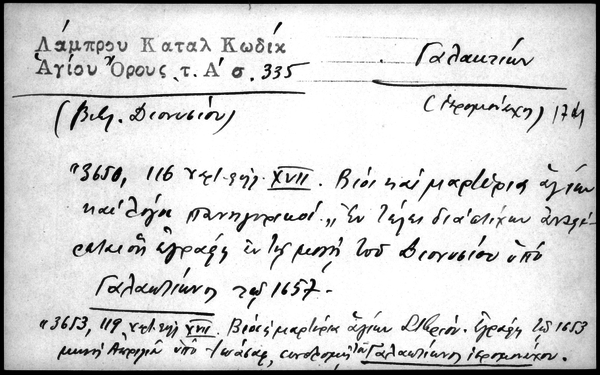 Λάμπρου Καταλ Κωδίκ
Ἁγίου Ὄρους τ. Α΄ σ. 335
Γαλακτίων
(Βιβλ. Διονυσίου)
(ἱερομόναχος)
"3650, 116 XVII. Βίοι καὶ μαρτύρια ἁγίων
καὶ λόγοι πανηγυρικοί." Ἐν τέλει διὰ στίχων ἀναφέ-
ρεται ὅτι ἐγράφη ἐν τῇ μονῇ τοῦ Διονυσίου ὑπὸ
Γαλακτίωνος τῷ 1657.-
"3653, 119 XVII. Βίοι καὶ μαρτύρια ἁγίων ἐγράφη τῷ 1653
μονῇ ὑπὸ Γαλακτίωνος ἱερομονάχου.